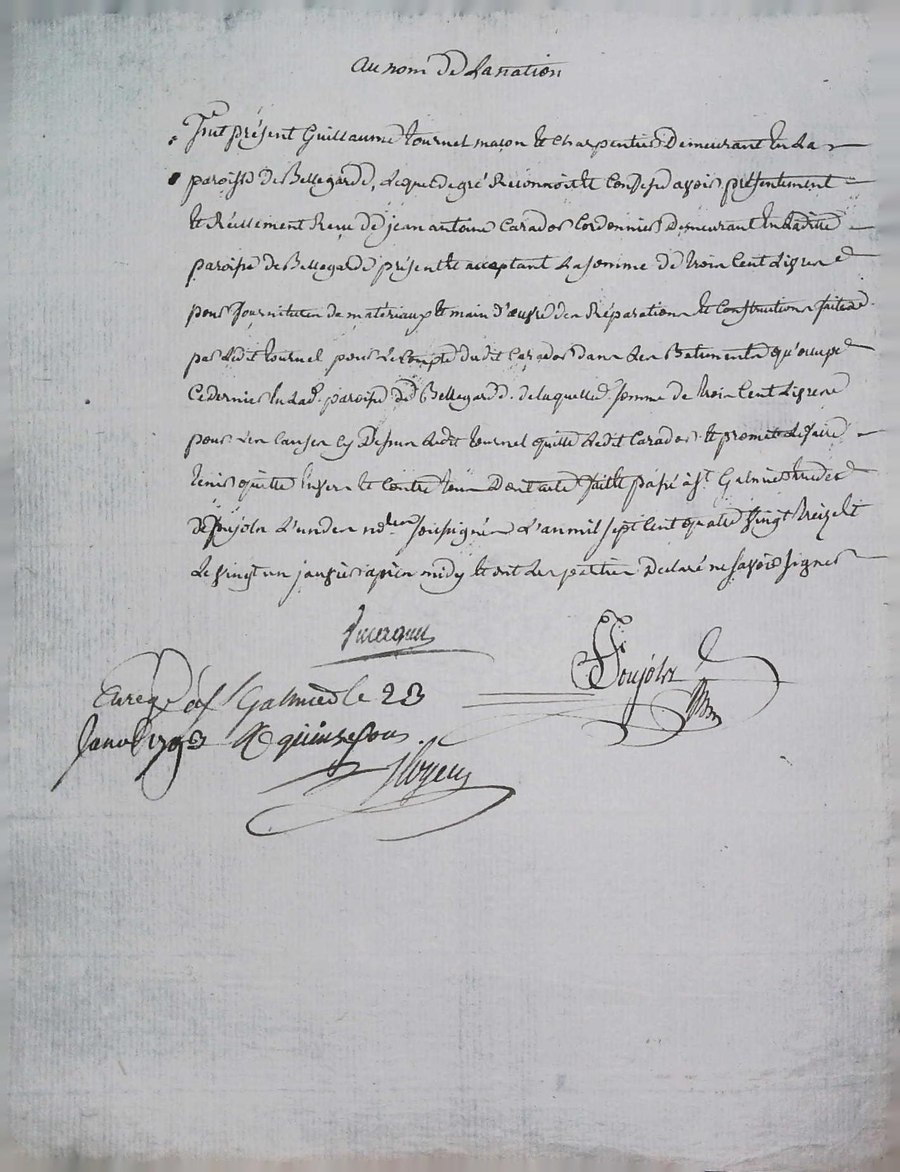 au nom de la nation
Fut présent Guillaume tournel mason et charpentier Demeurant en la
paroisse de Bellegarde, Lequel de gré Reconnoit et confesse avoir présentement
et Réellement Reçu de jean antoine Carador Cordonnier Demeurant en Laditte
paroisse de Bellegarde présent et acceptant La somme de trois Cent Livres
pour fourniture de matériaux et main d'œuvre des Réparations et Constructions faites
par Ledit tournel pour Le compte dudit Carador dans Les Batiments qu'occupe
Ce dernier en Lad. paroisse de Bellegarde. de laquelle somme de trois Cent Livres
pour Les Causes cy Dessus Ledit tournel quitte Ledit Carador et promet Le faire
tenir quitte Envers et Contre tous Dont acte fait et passé à St Galmier étude
de Poujols L'un des nores soussignés L'an mil sept Cent quatre vingt treize et
Le vingt un janvier apres midy et ont Les parties Déclaré ne savoir signer
Poujols
Enreg. à St Galmier le 23
Janv. 1793 R quinze sous